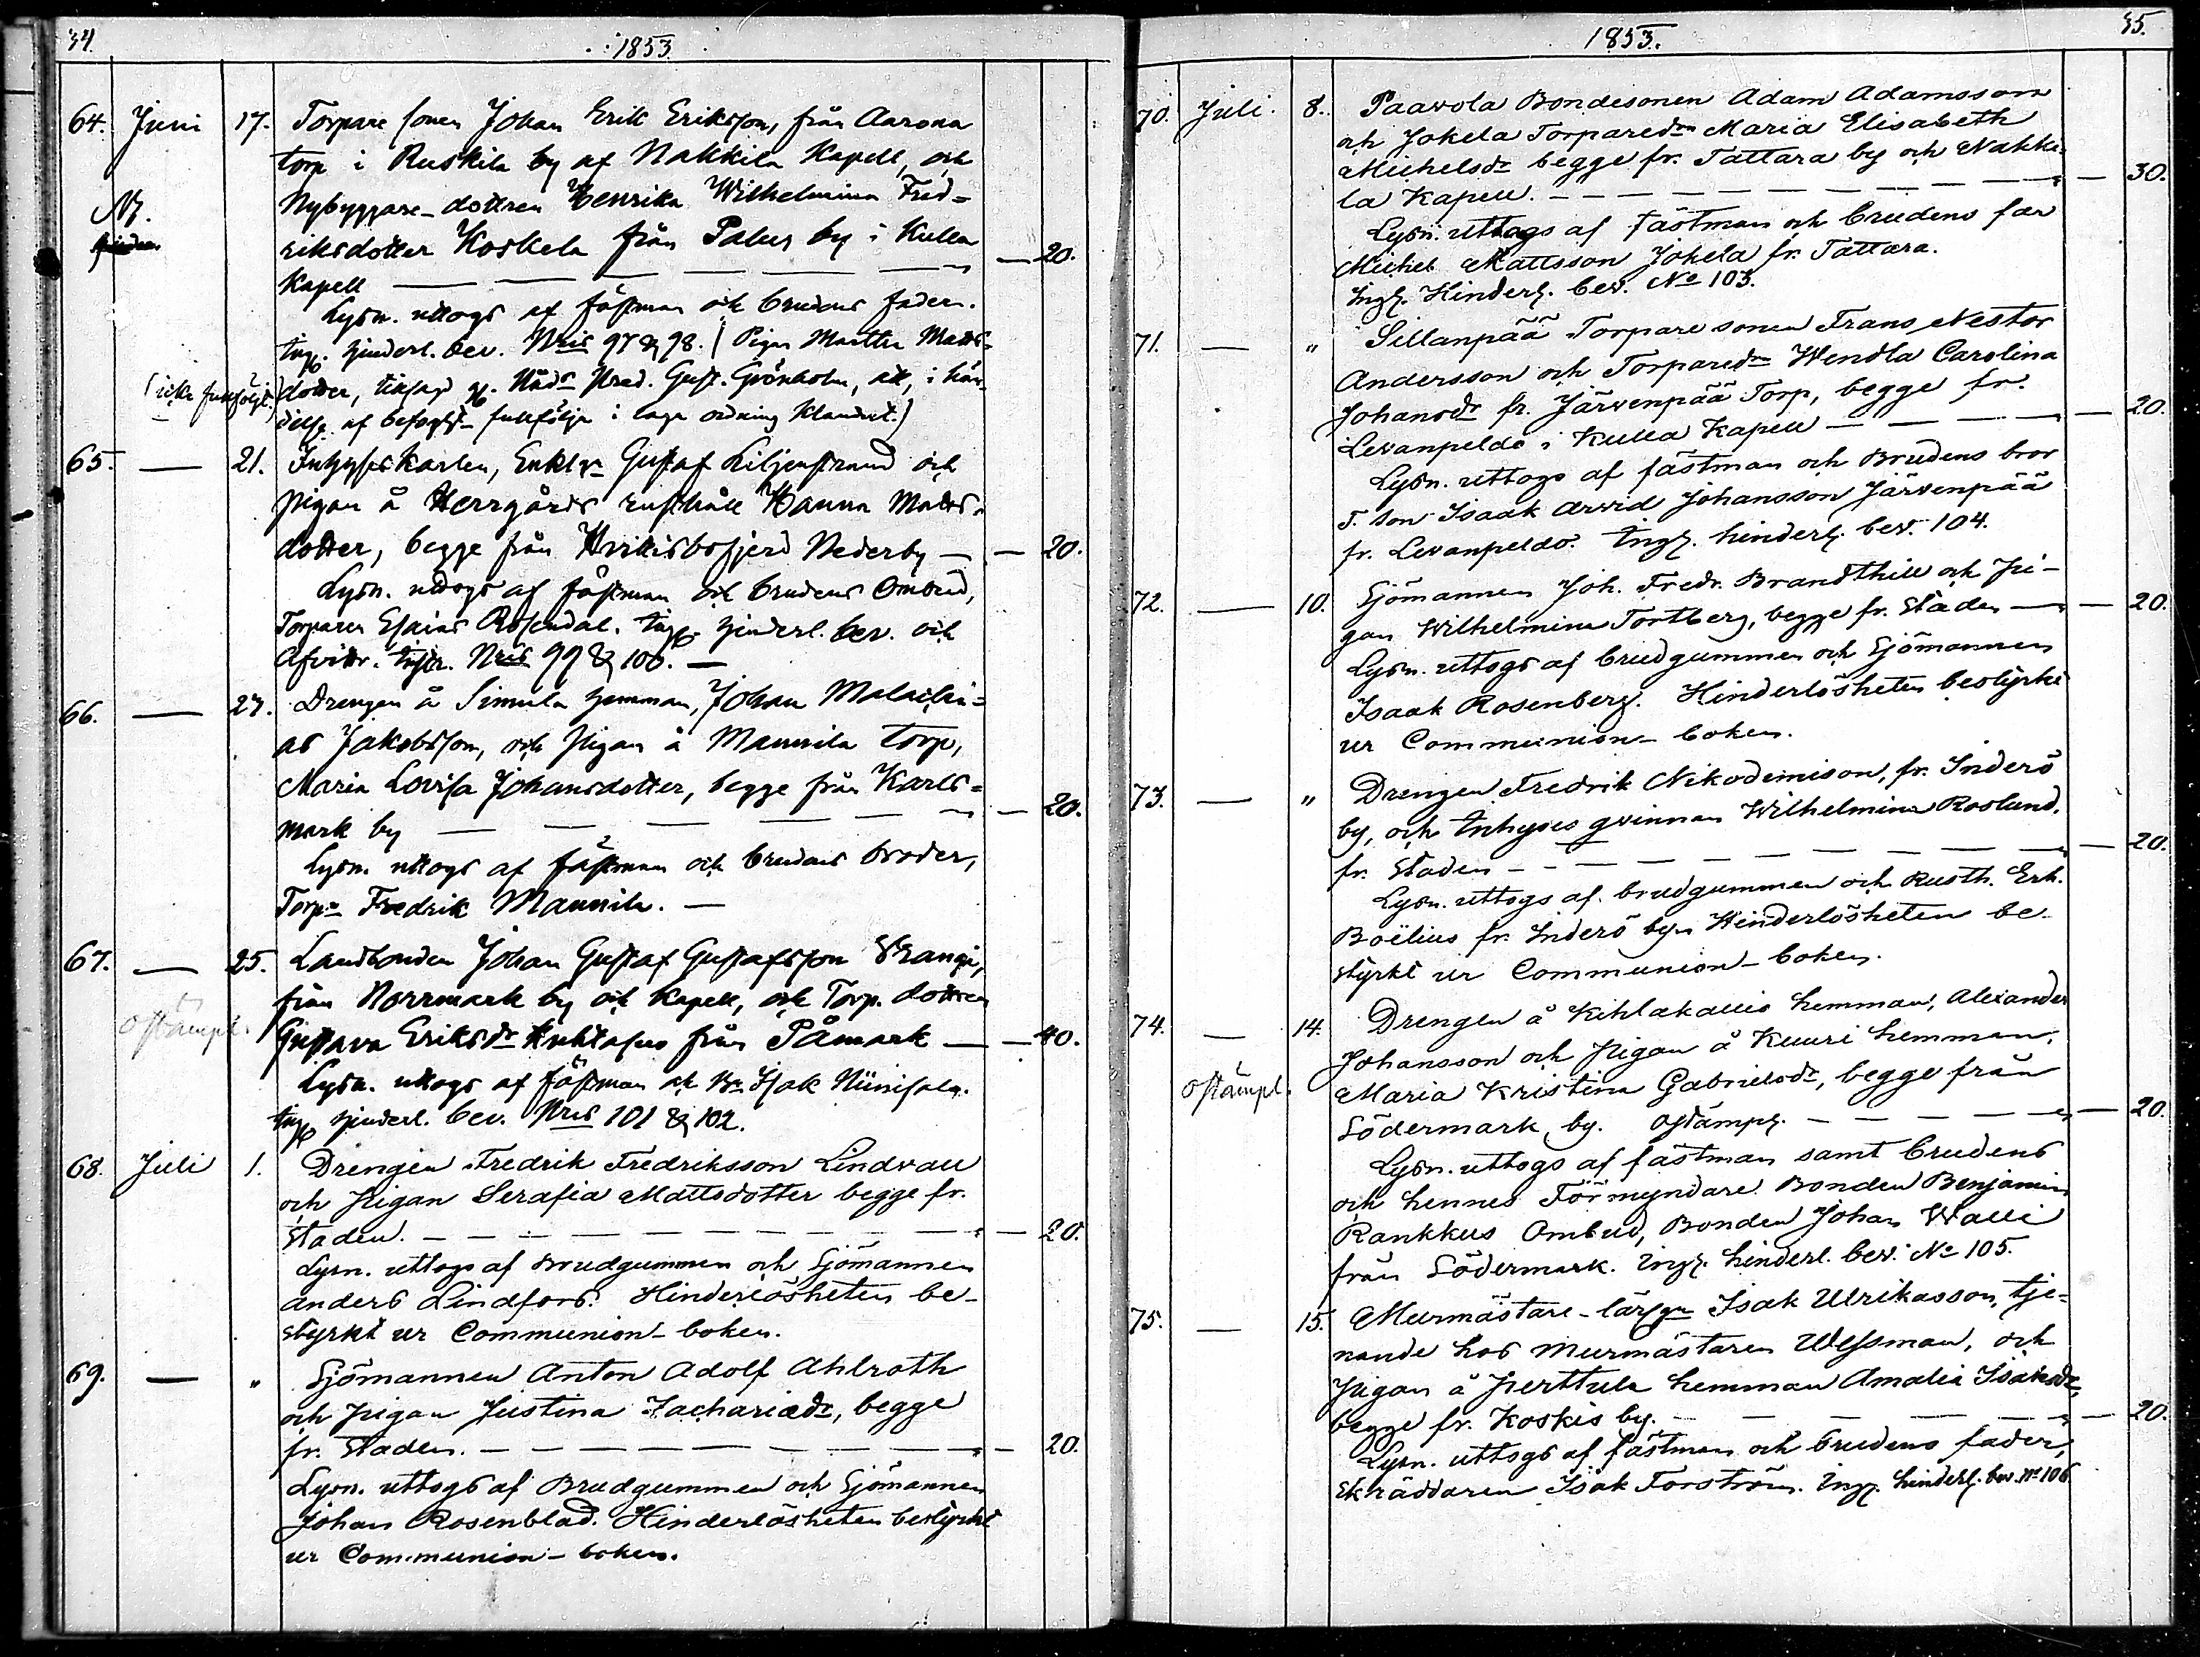 34.
1853.
64. Juni 17. Torpare sonen Johan Erik Eriksson, från Aarona
torp i Ruskila by af Nakkila Kapell, och
Nybyggare-dottren Henrika Wilhelmina Fred-
riksdotter Koskela från Palus by i Kulla
Kapell — — — — — 20.
Lysn. uttogs af fästman och brudens fader.
Ing. hinderl. bev. Nris 97 & 98. (Pigan Martha Matts-
(icke fullföljt.) dotter, Gust. Grönholm, att, i hän-
af fullfölja i laga ordning klandret.)
65. — 21. Inhyses Karlen, Enkl. Gustaf Liljenstrand och
pigan å Herrgårds rusthåll Hanna Matts-
dotter, begge från Hvittisbofjerd Nederby — — 20.
Lysn. uttogs af fästman och brudens Ombud,
Torparen Esaias Rosendal. Ing. hinderl. bev. och
Nris 99 & 100. —
66. — 27. Drengen å Simula hemman, Johan Malachi-
as Jakobsson, och Pigan å Mannila torp,
Maria Lovisa Johansdotter, begge från Karls-
mark by — — — — — 20.
Lysn. uttogs af fästman och brudens broder,
Torp. Fredrik Mannila. —
67. — 25. Landbonden Johan Gustaf Gustafsson
från Norrmark by och Kapell, och Torp. dottren
ostämpl. Gustava Eriksdr från Påmark — — 40.
Lysn. uttogs af fästman och Isak Niinisalo.
Ing. hinderl. bev. Nris 101 & 102.
68. Juli 1. Drengen Fredrik Fredriksson Lindvall
och Pigan Serafia Mattsdotter begge fr.
Staden. — — — — — 20.
Lysn. uttogs af Brudgummen och Sjömannen
Anders Lindfors. Hinderlösheten be-
styrkt ur Communion-boken.
69. — " Sjömannen Anton Adolf Ahlroth
och Pigan Justina Zachariædr, begge
fr. Staden. — — — — — 20.
Lysn. uttogs af Brudgummen och Sjömannen
Johan Rosenblad. Hinderlösheten bestyrkt
ur Communion-boken.
35.
1853.
70. Juli. 8. Paavola Bondesonen Adam Adamsson
och Jokela Torparedrn Maria Elisabeth
Michelsdr begge fr. Tattara by och Nakki-
la Kapell. — — — — — 30.
Lysn. uttogs af fästman och brudens far
Michel Mattsson Jokela fr. Tattara.
Ing. Hinderl. bev. No 103.
71. — " Sillanpää Torpare sonen Frans Nestor
Andersson och Torparedrn Wendla Carolina
Johansdr fr. Järvenpää Torp, begge fr.
Levanpeldo i Kulla Kapell — — — 20.
Lysn. uttogs af fästman och Brudens bror
T. son Isaak Arvid Johansson Järvenpää
fr. Levanpeldo. Ing. hinderl. bev. 104.
72. — 10. Sjömannen Joh. Fredr. Brandthill och Pi-
gan Wilhelmina Tortberg, begge fr. Staden — — 20.
Lysn. uttogs af brudgummen och Sjömannen
Isaak Rosenberg. Hinderlösheten bestyrkt
ur Communion-boken.
73. — " Drengen Fredrik Nikodemison, fr. Inderö
by, och Inhyses qvinnan Wilhelmina Roslund,
fr. Staden — — — — — 20.
Lysn. uttogs af brudgummen och Rusth. Erh.
Boëlius fr. Inderö by. Hinderlösheten be-
styrkt ur Communion-boken.
74. — 14. Drengen å Kihlakallio hemman, Alexander
Johansson och Pigan å Kuuri hemman,
ostämpl. Maria Kristina Gabrielsdr, begge från
Södermark by. Ostämpl. — — — — 20.
Lysn. uttogs af fästman samt brudens
och hennes Förmyndare Bonden Benjamin
Rankkus Ombud, Bonden Johan Walli
från Södermark. Ing. hinderl. bev. No 105.
75. — 15. Murmästare-lärlgn Isak Ulrikasson, tje-
nande hos Murmästaren Wessman, och
Pigan å Perttula hemman Amalia Isaksdr,
begge fr. Koskis by. — — — — 20.
Lysn. uttogs af fästman och brudens fader,
Skräddaren Isak Forström. Ing. hinderl. bev. No 106.